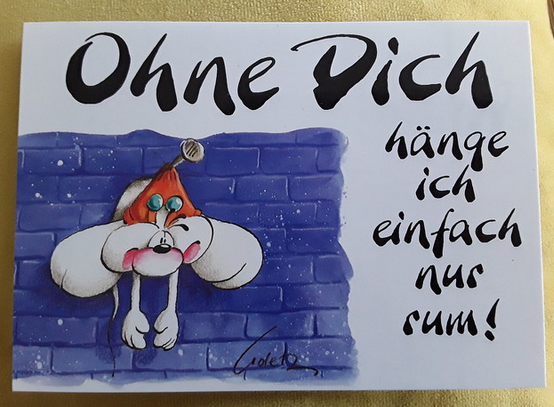 Ohne Dich
hänge
ich
einfach
nur
rum!